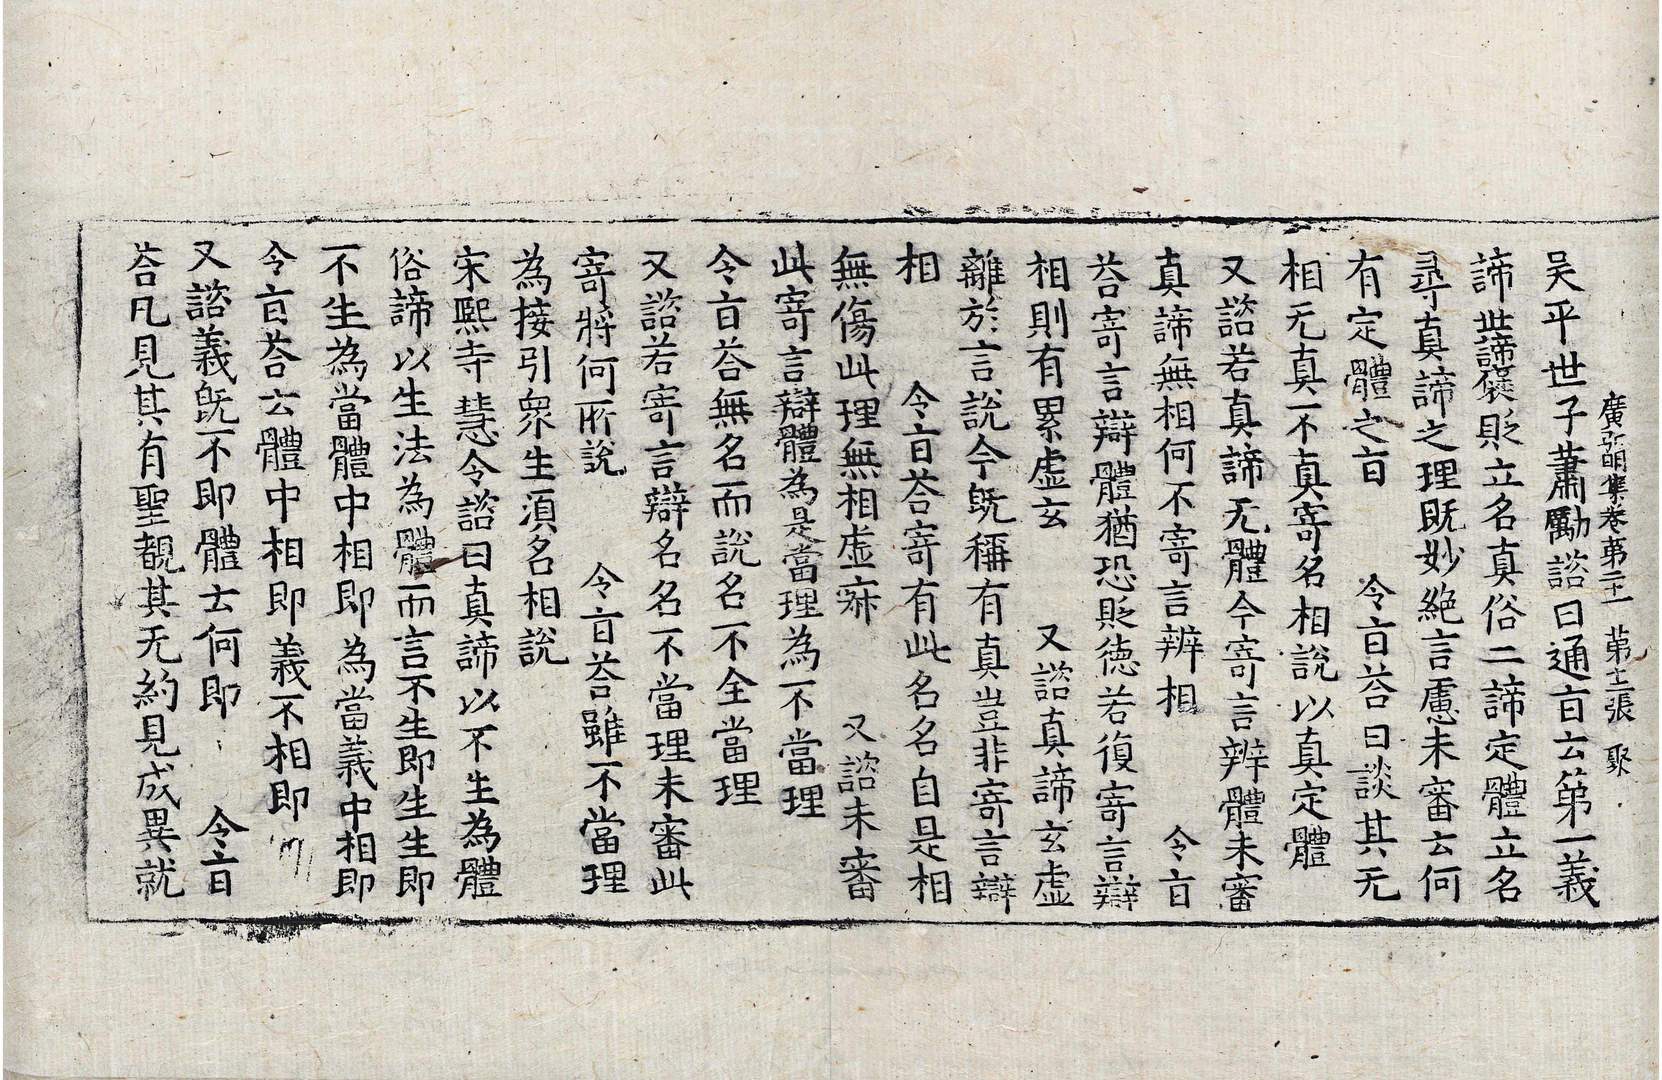 廣弘明集卷第二十一　第十二張　聚
吴平世子蕭勵諮曰通㫖云苐一義
諦世諦襃貶立名真俗二諦定體立名
尋真諦之理既妙絶言慮未審云何
有定體之㫖　令㫖荅曰談其无
相无真不真寄名相說以真定體
又諮若真諦无體今寄言辨體未審
真諦無相何不寄言辨相　令㫖
荅寄言辯體猶恐貶徳若復寄言辯
相則有累虚玄　又諮真諦玄虚
離於言說今既稱有真豈非寄言辯
相　令㫖荅寄有此名名自是相
無傷此理無相虚寂　又諮未審
此寄言辯體為是當理為不當理
令㫖荅無名而說名不全當理
又諮若寄言辯名名不當理未審此
寄將何所說　令㫖荅雖不當理
為接引衆生湏名相說
宋熙寺慧令諮曰真諦以不生為體
俗諦以生法為體而言不生即生生即
不生為當體中相即為當義中相即
令㫖荅云體中相即義不相即
又諮義既不即體云何即　令㫖
荅凡見其有聖覩其无約見成異就